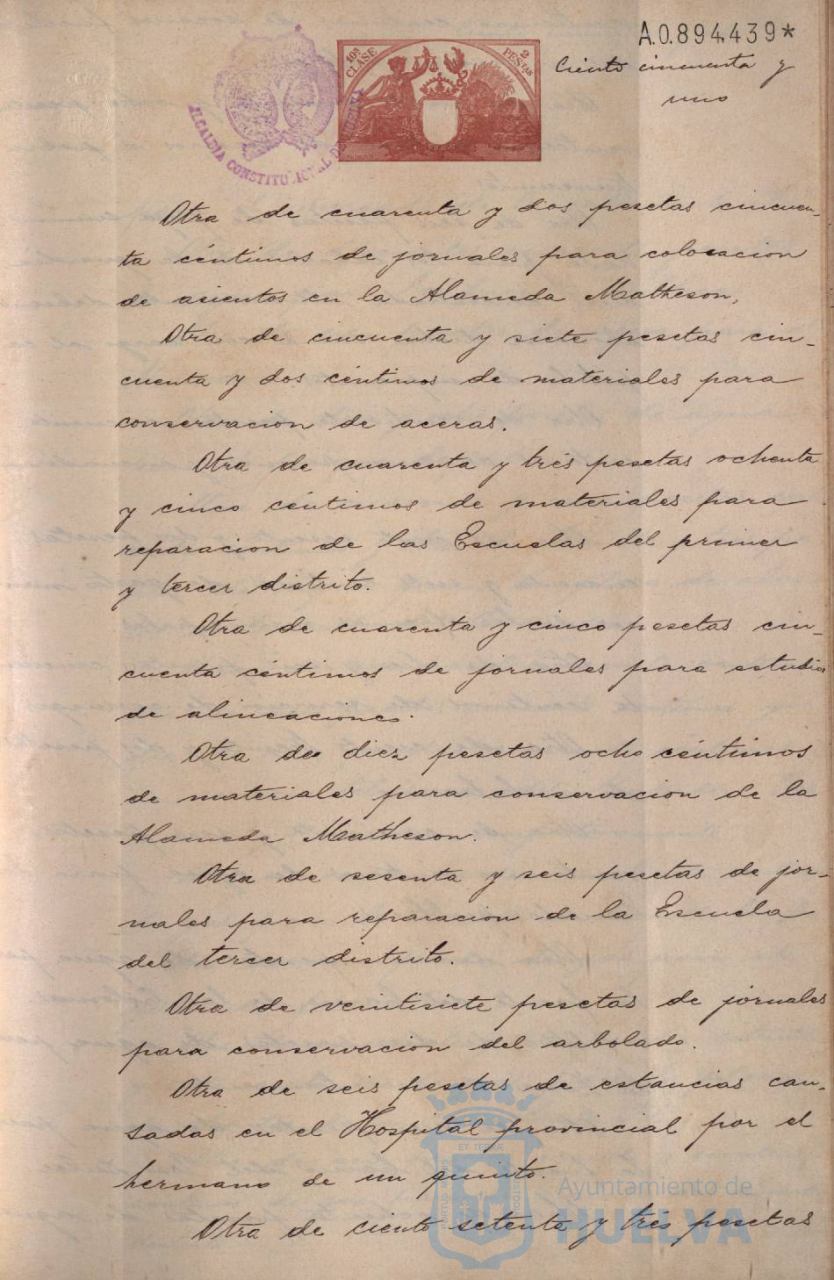 A.0.894.439*
10ª CLASE
2 PESETAS
Ciento cincuenta y
uno
ALCALDIA CONSTITUCIONAL DE HUELVA
Otra de cuarenta y dos pesetas cincuen-
ta céntimos de jornales para colocacion
de asientos en la Alameda Matheson,
Otra de cincuenta y siete pesetas cin-
cuenta y dos céntimos de materiales para
conservacion de aceras.
Otra de cuarenta y trés pesetas ochenta
y cinco céntimos de materiales para
reparacion de las Escuelas del primer
y tercer distrito.
Otra de cuarenta y cinco pesetas cin-
cuenta céntimos de jornales para estudios
de alineaciones.
Otra de diez pesetas ocho céntimos
de materiales para conservacion de la
Alameda Matheson.
Otra de sesenta y seis pesetas de jor-
nales para reparacion de la Escuela
del tercer distrito.
Otra de veintisiete pesetas de jornales
para conservacion del arbolado.
Otra de seis pesetas de estancias cau-
sadas en el Hospital provincial por el
hermano de un quinto.
Otra de ciento setenta y trés pesetas
Ayuntamiento de
HUELVA